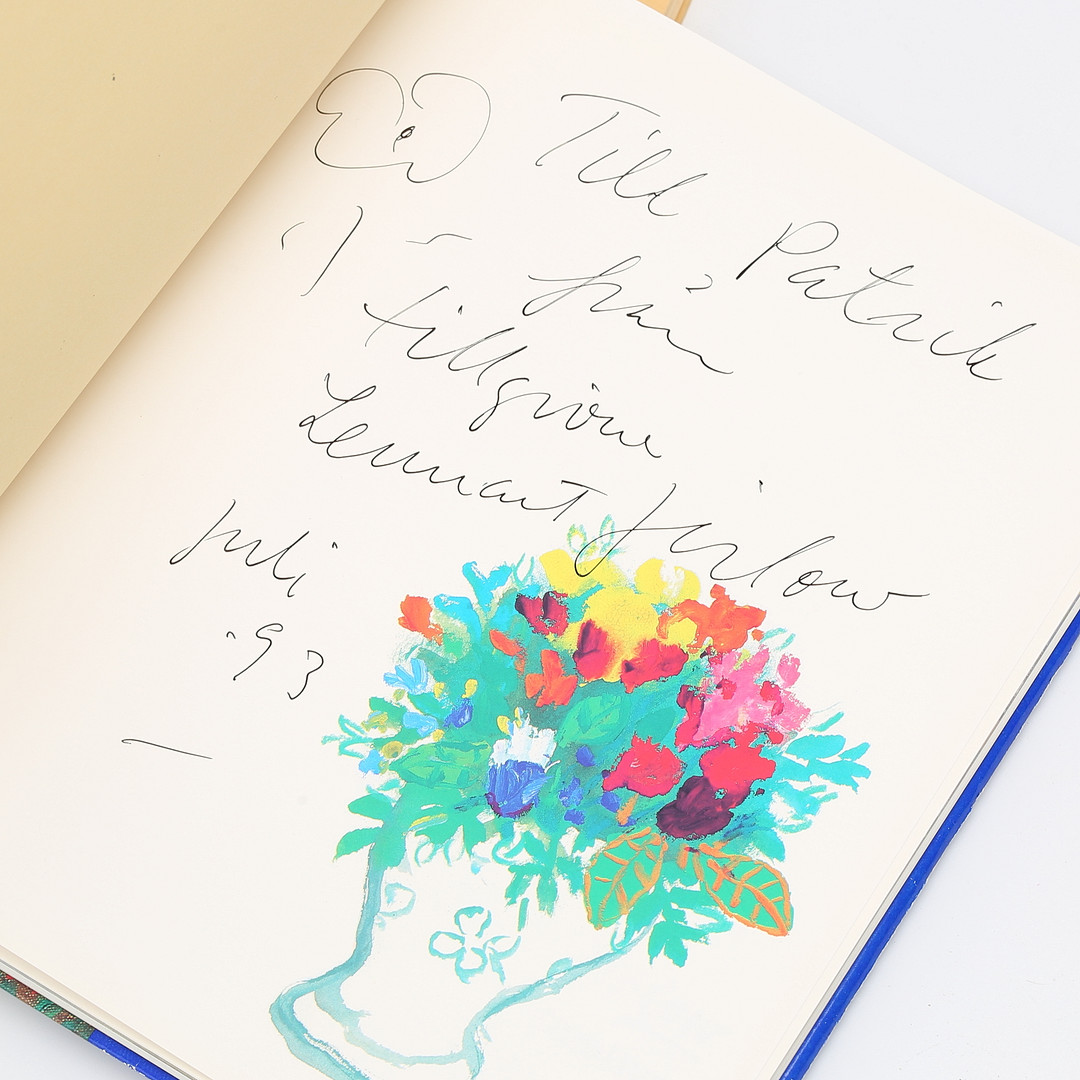 Till Patrik
från
tillgivne
Lennart Jirlow
Juli
-93